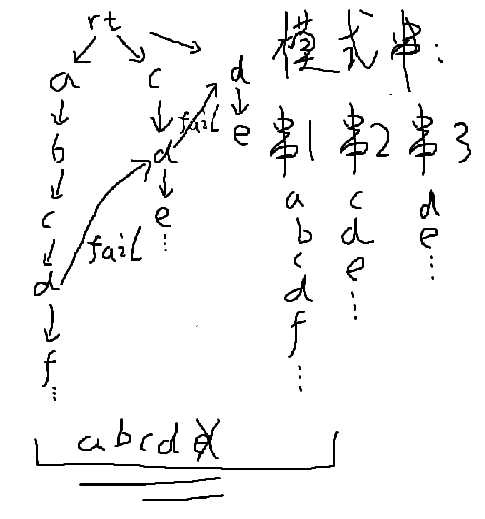 rt
a c d 模式串:
b d fail e 串1 串2 串3
c e a c d
d fail ⋮ b d e
f c e ⋮
⋮ d ⋮
f
⋮
abcd